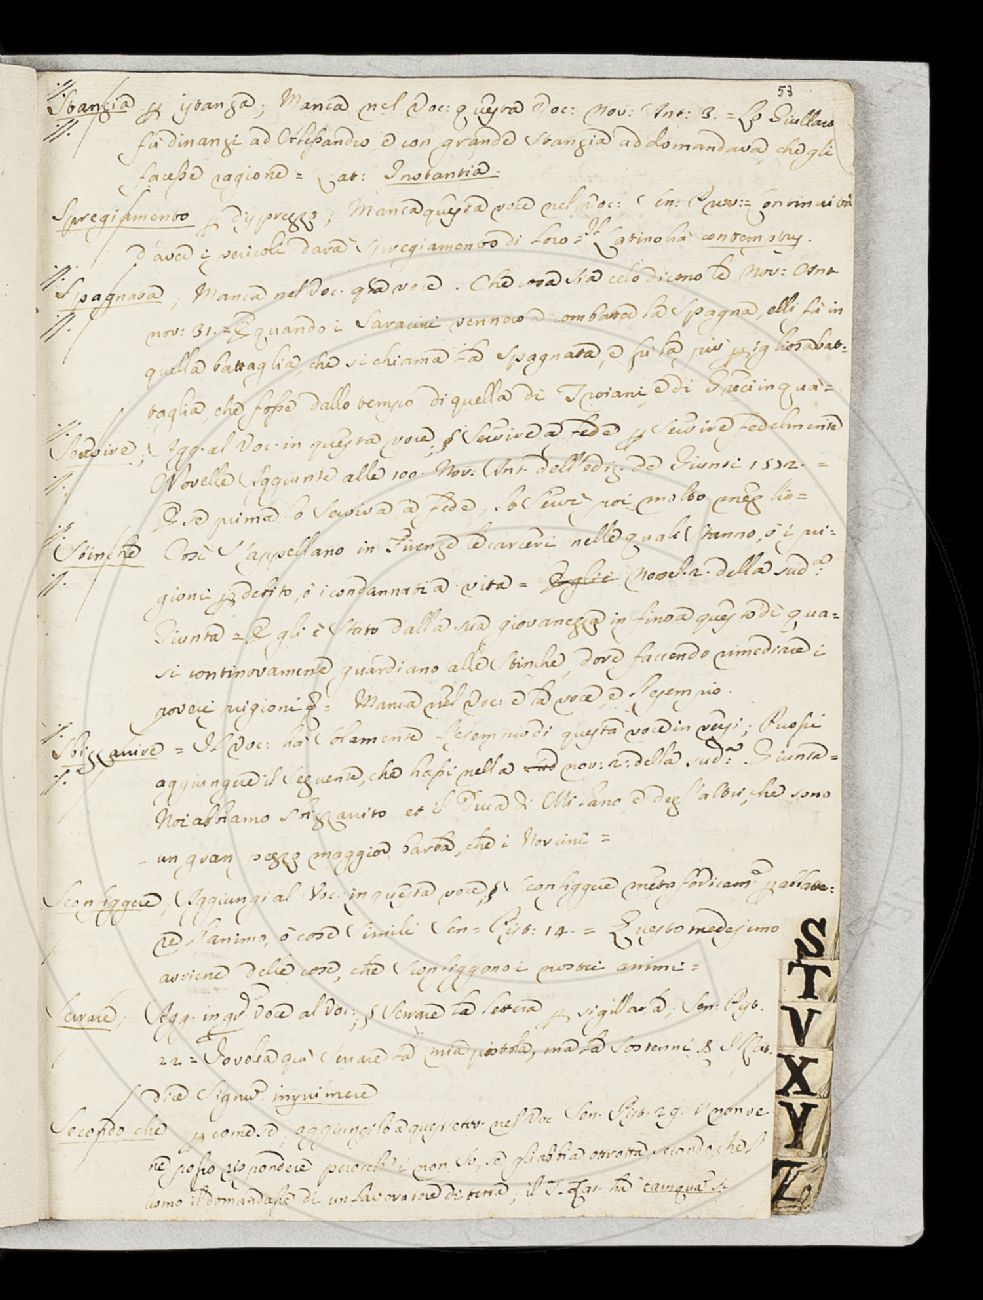 53
Stanzia ꝑ istanza; Manca nel Voc: questa Voc: Nov: Ant: 3. = Lo Giullaro
fu dinanzi ad Alessandro, e con grande Stanzia addomandava, che gli
facesse ragione = Lat: Instantia.
Spregiamento ꝑ dispregio; Manca questa voce nel Voc: Sen:
d'aver i pericoli dava Spregiamento di loro = Il Latino ha contemptus.
Spagnata; Manca nel Voc. qsta voce. Che cosa sia celo dicono le Nov: Ant
nov: 31. = E quando i Saracini vennero a combatter la Spagna, elli fu in
quella battaglia, che si chiama la Spagnata, e fu la più ꝑigliosa bat=
taglia, che fosse dallo tempo di quella di Troiani, e di Greci in qua =
Servire, Agg. al Voc. in questa voce, § Servire a fede ꝑ Servire fedelmente
Novelle Aggiunte alle 100. Nov. Ant. dell'ediz. de Giunti 1572. =
E se prima lo Serviva a fede, lo Servì poi molto meglio =
Stinche Così S'appellano in Firenze le carceri nelle quali Stanno, o i pri=
gioni ꝑ debito, o i condannati a vita = Egli è Novel. 2. della sud.ª
Giunta = E gli è Stato dalla sua giovanezza in fino a questo dì qua=
si continovamente guardiano alle Stinche, dove facendo rimediare i
poveri prigioni = Manca nel Voc: e la voce, e l'esempio.
Stizzavire = Il Voc: ha Solamente l'esempio di questa voce in versi; Puossi
aggiungere il Seguente, che hassi nella nov: 2: della sud.ª Giunta =
Noi abbiamo et il Duca di Milano, e degl'altri, che sono
un gran pezzo maggior barba, che i Norcini =
Sconfiggere, Aggiungi al Voc. in questa voce, § Sconfiggere metaforicam.e ꝑ abbatte=
re l'animo, o cose Simili Sen. Pist: 14. = Questo medesimo
avviene delle cose, che Sconfiggono i nostri animi =
Serrare; Agg. in q.ª Voce al Voc; § Serrare la lettera ꝑ sigillarla, Sen: Pist.
22 = Io volea qui Serrare la mia pistola, ma la Sostenni § Il Lat.
dice Signu. imprimere
Secondo che ꝑ come se, aggiungi la quest nel Voc Sen. Pist. 29. Io non ve
ne posso rispondere perocch'i non So, se gli abbia Secondo che l'
uomo il domandasse di un lavoratore di terra; il T. ha tamquam si
S
T
V
X
Y
Z